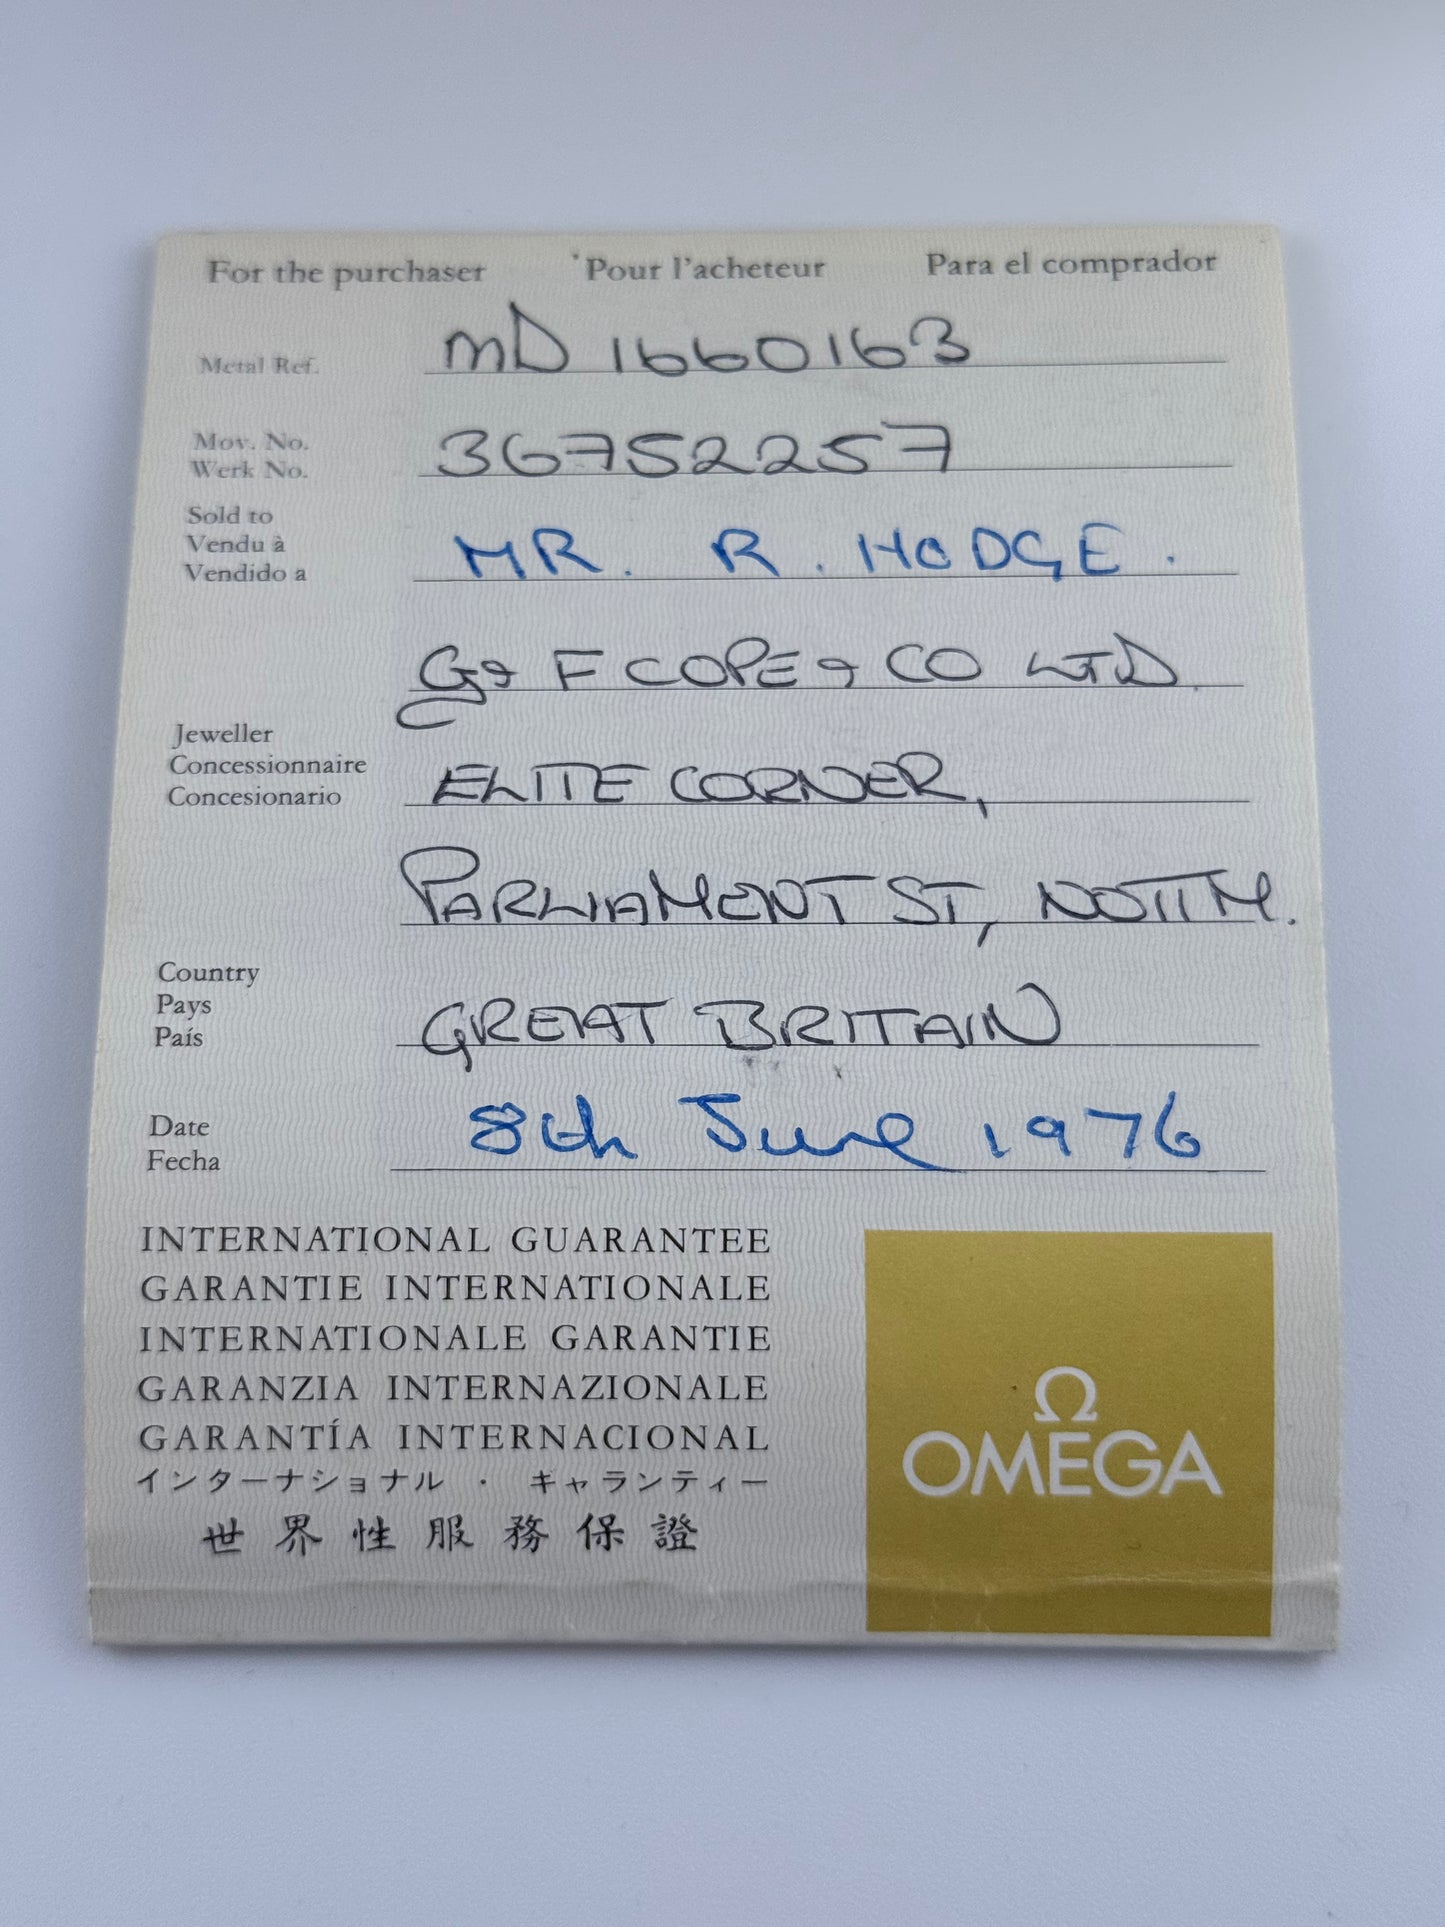 For the purchaser Pour l'acheteur Para el comprador
Metal Ref. MD 1660163
Mov. No. 36752257
Werk No.
Sold to
Vendu à MR. R. HODGE.
Vendido a
G & F COPE & CO LTD.
Jeweller
Concessionnaire ELITE CORNER,
Concesionario
PARLIAMENT ST, NOTTM.
Country
Pays GREAT BRITAIN
País
Date 8th June 1976
Fecha
INTERNATIONAL GUARANTEE
GARANTIE INTERNATIONALE
INTERNATIONALE GARANTIE
GARANZIA INTERNAZIONALE
GARANTÍA INTERNACIONAL
インターナショナル・ギャランティー
世界性服務保證
Ω
OMEGA